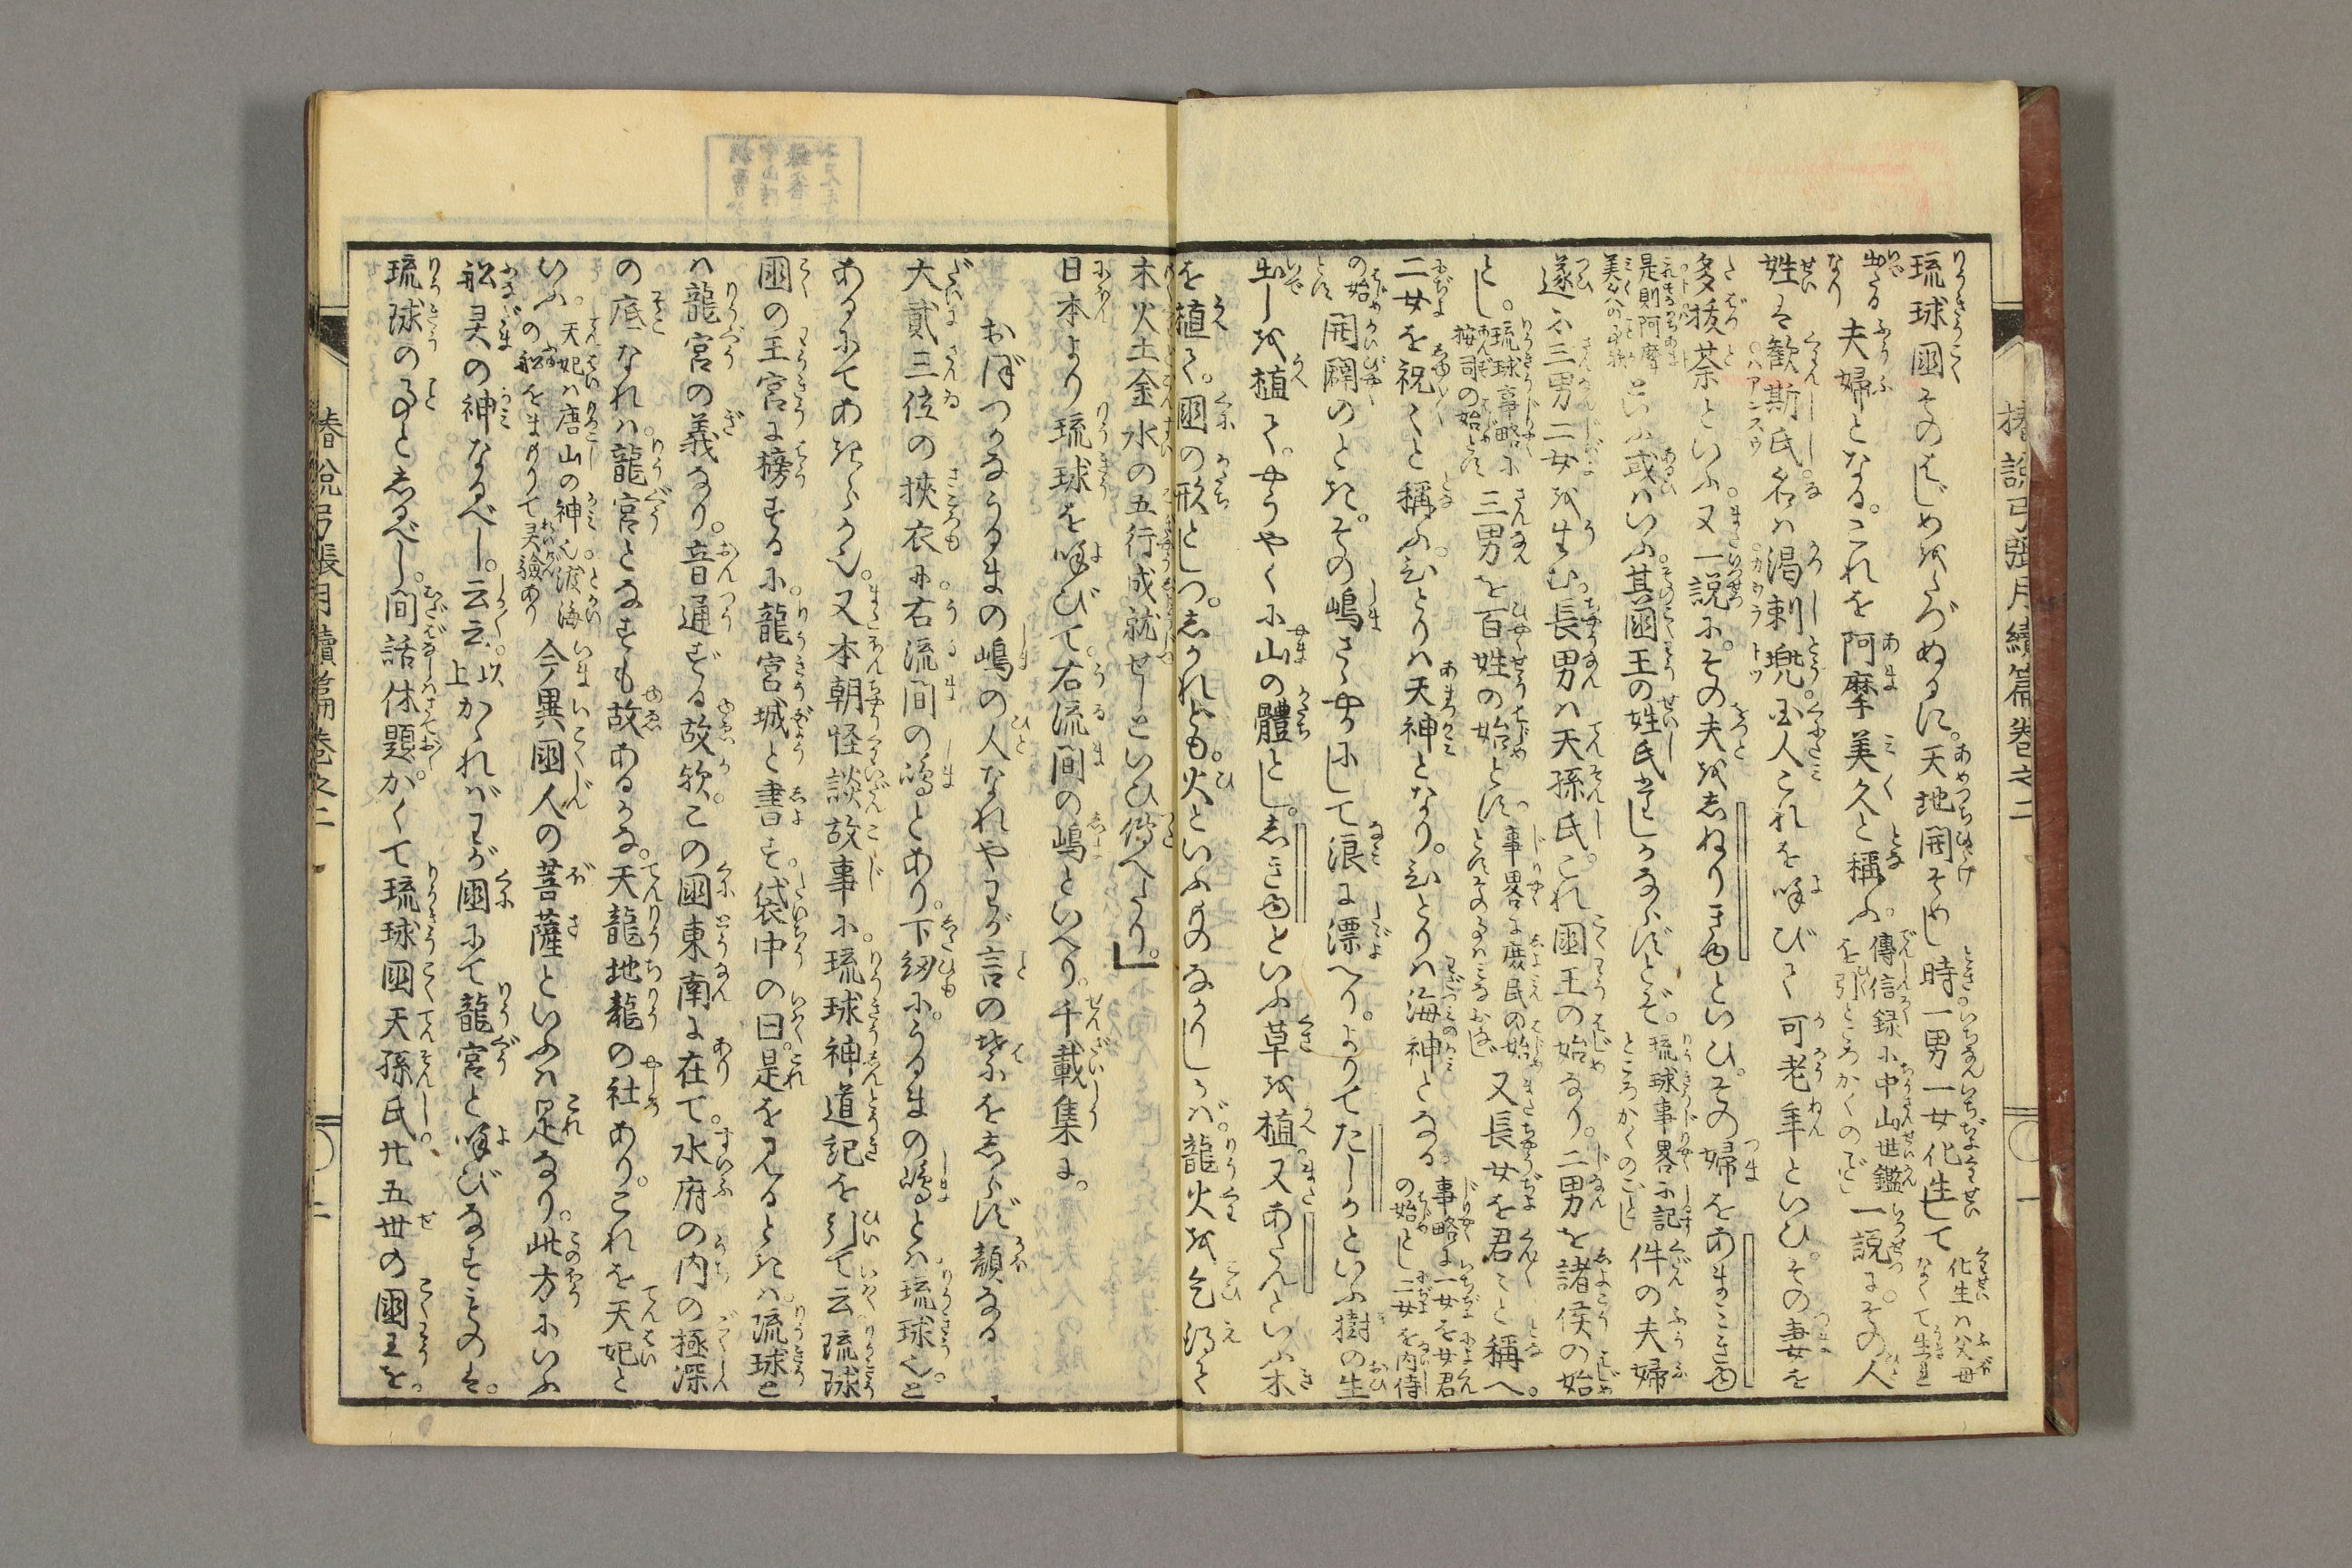 琉球國そのはじめをたづぬるに。天地開そめし時。一男一女化生して 化生ハ父母なくて生れ
出たるなり 夫婦となる。これを阿摩美久と稱ふ。傳信録に中山世鑑を引ところかくのごとし 一説に。その人
姓は歓斯氏。名ハ渇剌兜。國人これを呼びて可老羊といひ。その妻を
多抜荼といふ。又一説に。その夫をしねりきゆといひ。その婦をあまみきゆ
是則阿摩美久 といふ。或ハいふ。其國王の姓氏詳しからずとぞ。琉球事畧に記ところかくのごとし 件の夫婦
遂に三男二女を生む。長男ハ天孫氏。これ國王の始なり。二男を諸侯の始
とし。琉球事略に按司の始とす 三男を百姓の始とす。事畧に庶民の始とす 又長女を君々と稱へ。
二女を祝々と稱ふ。ひとりハ天神となり。ひとりハ海神となる 事略に一女を女君の始とし二女を内侍
の始とす 開闢のとき。その嶋さゝやかにして浪に漂へり。よりてたしかといふ樹の生
出しを植て。やうやくに山の體とし。しきゆといふ草を植。又あだんといふ木
を植て。國の形としつ。しかれども。火といふものなかりしかバ。龍火を乞得て
木火土金水の五行成就せしといひ傳へたり。」
日本より琉球を呼びて。右流間の嶋といへり。千載集に。
おぼつかなうるまの嶋の人なれやわが言の葉をしらず顔なる
大貳三位の挾衣に。右流間の嶋とあり。下紐に。うるまの嶋とハ琉球也と
あるにてあきらか也。又本朝怪談故事に。琉球神道記を引て云琉球
國の王宮に榜するに。龍宮城と書す。袋中の曰。是を見るときハ。流球と
ハ龍宮の義なり。音通ずる故歟。この國東南に在て。水府の内の極深
の底なれハ。龍宮となすも故あるかな。天龍地龍の社あり。これを天妃と
いふ。天妃ハ唐山の神也。渡海の船をまもりて灵驗あり 今異國人の菩薩といふハ是なり。此方にいふ
船灵の神なるべし。云云。以上 かゝれバわが國にて龍宮と呼びなすものは。
琉球の事としるべし。間話休題。かくて琉球國天孫氏廿五世の國王を。
椿説弓張月續篇卷之二
一
椿説弓張月續篇卷之二
二